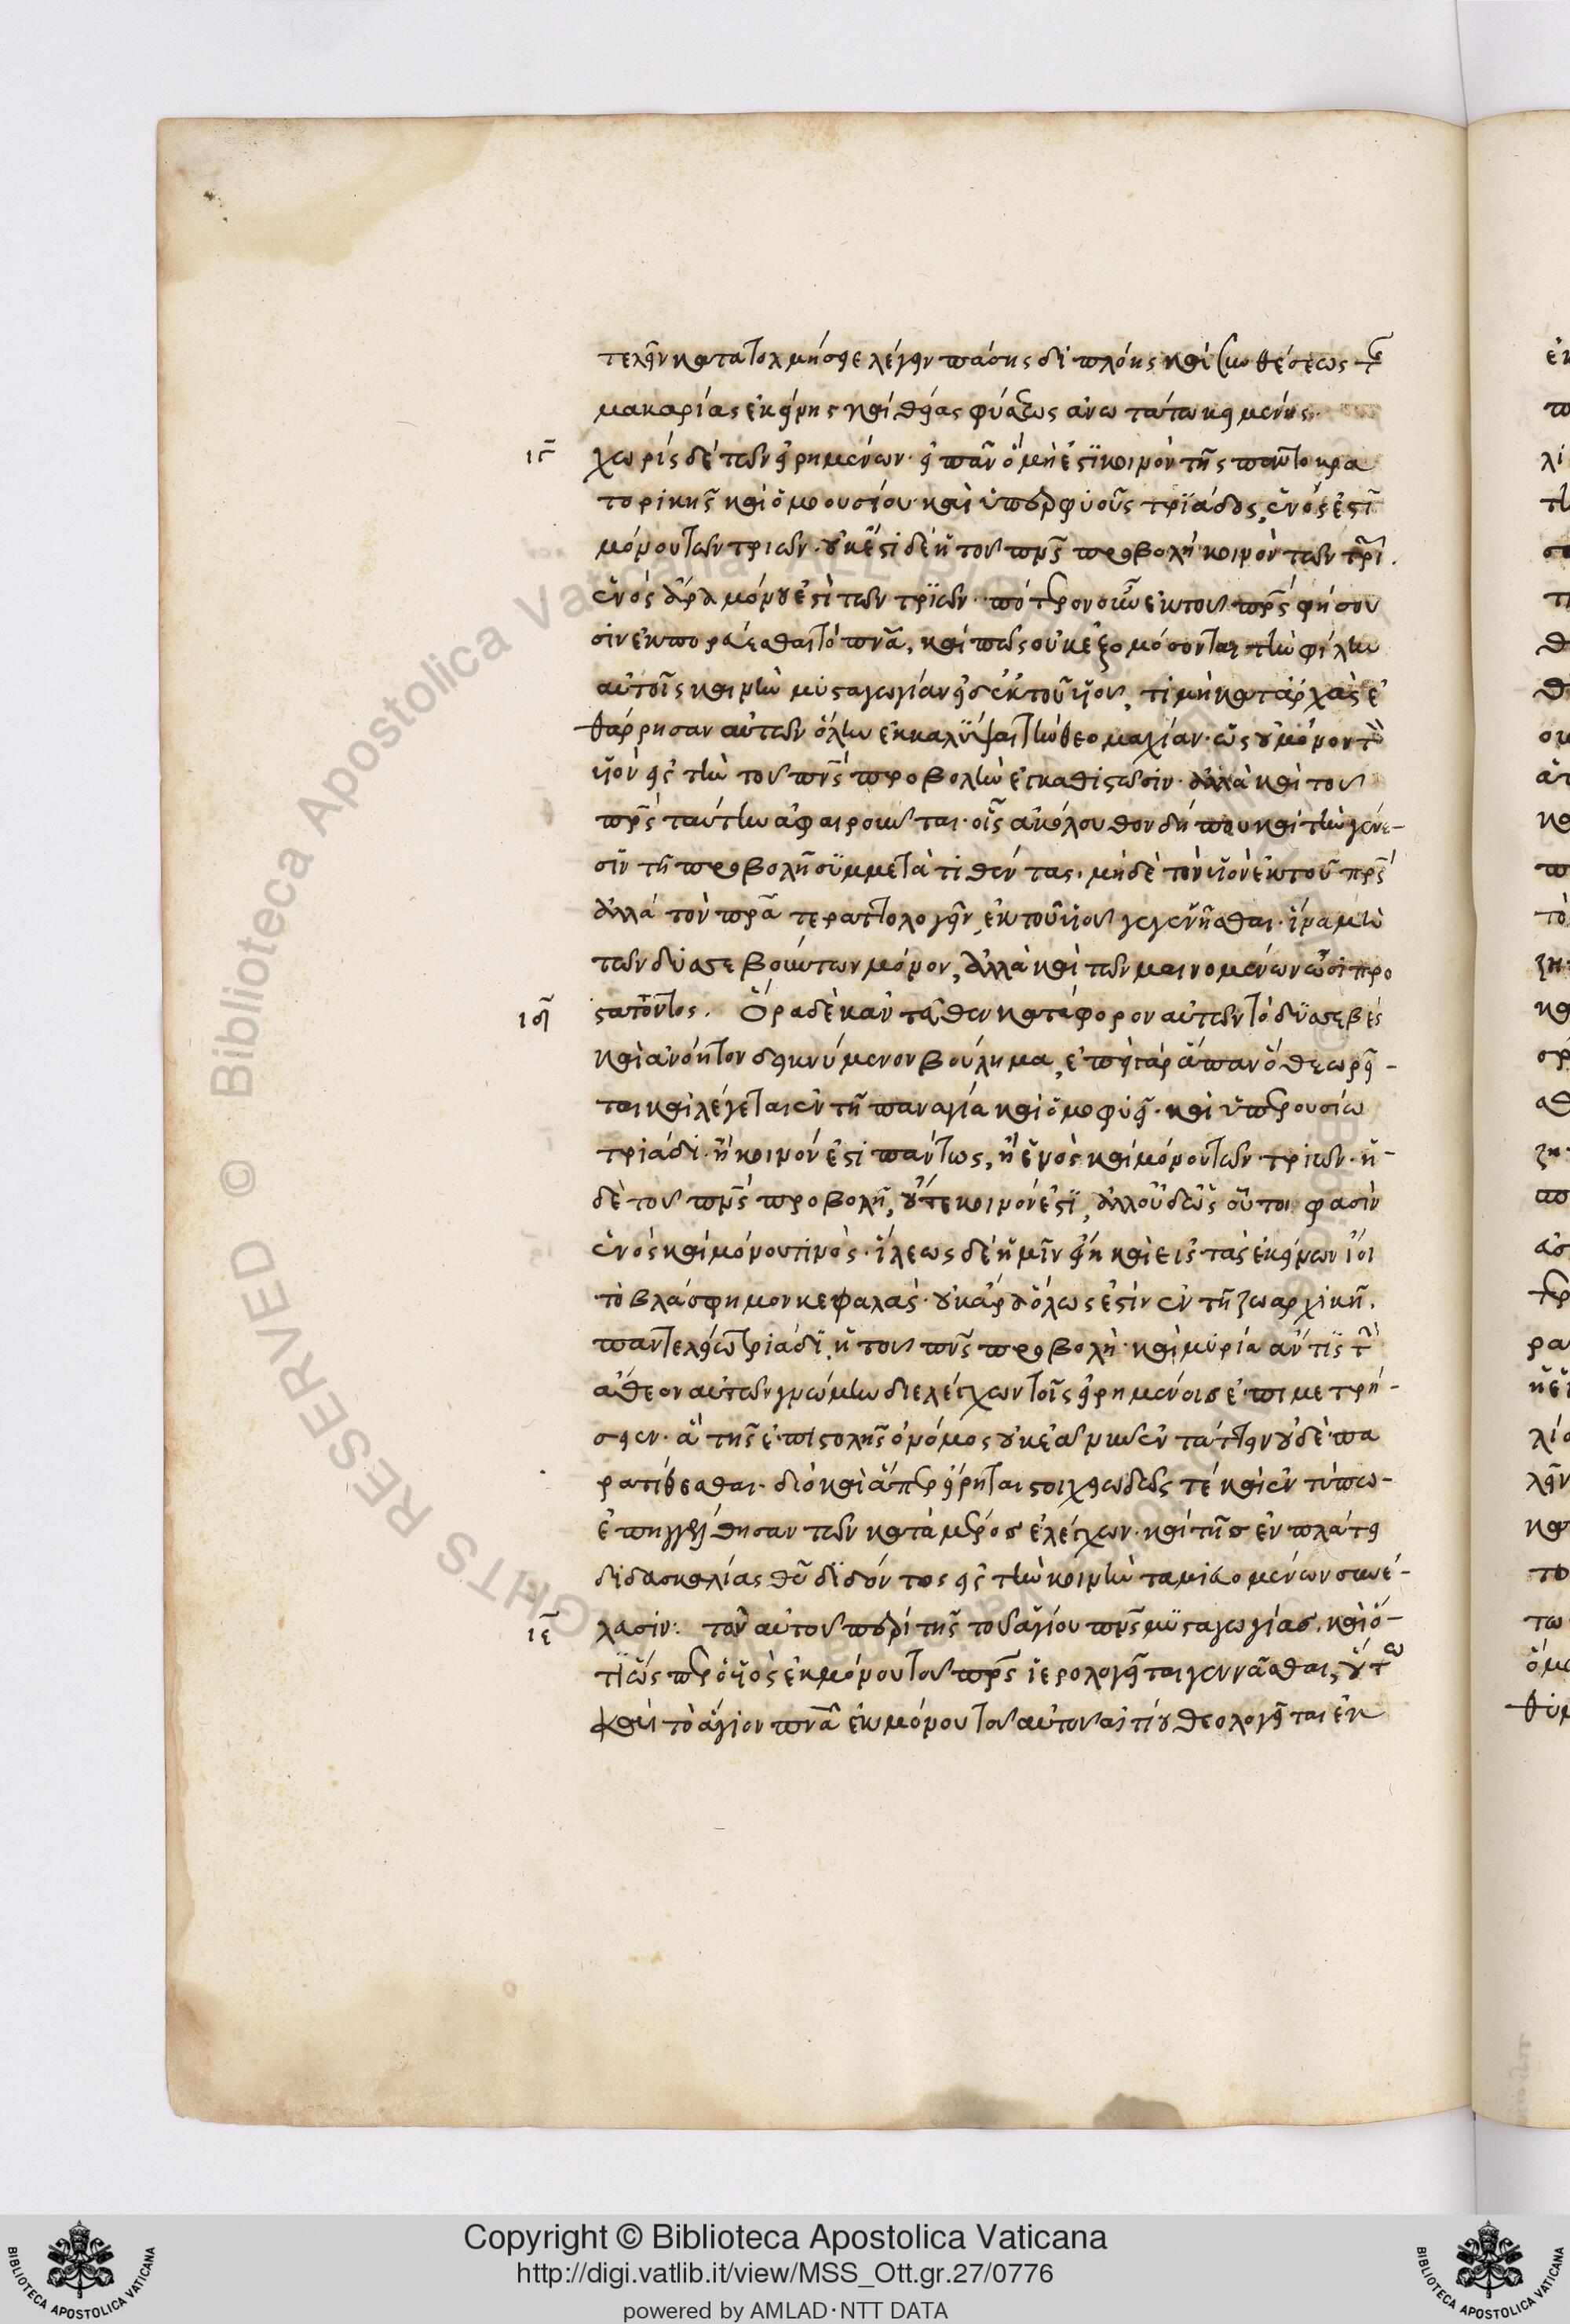 τελεῖν κατατολμήσειε λέγειν πάσης διπλόης καὶ συνθέσεως τῆς
μακαρίας ἐκείνης καὶ θείας φύσεως ἀνωτάτω κειμένης.
ιγ χωρὶς δὲ τῶν εἰρημένων· εἰ πᾶν ὃ μή ἐστι κοινὸν τῆς παντοκρα
τορικῆς καὶ ὁμοουσίου καὶ ὑπερφυοῦς τριάδος, ἑνός ἐστι
μόνου τῶν τριῶν· οὐκ ἔστι δὲ ἡ τοῦ πνς προβολὴ κοινὸν τῶν τριῶν.
ἑνὸς ἄρα μόνου ἐστὶ τῶν τριῶν· πότερον οὖν ἐκ τοῦ πρς φήσου
σιν ἐκπορεύεσθαι τὸ πνα, καὶ πῶς οὐκ ἐξομόσονται τὴν φίλην
αὐτοῖς καινὴν μυσταγωγίαν· εἰ δ ἐκ τοῦ υἱοῦ, τί μὴ κατ ἀρχὰς ἐ
θάρρησαν αὐτῶν ὅλην ἐκκαλύψαι τὴν θεομαχίαν· ὡς οὐ μόνον τὸν
υἱὸν εἰς τὴν τοῦ πνς προβολὴν ἐγκαθιστῶσιν· ἀλλὰ καὶ τοῦ
πρς ταύτην ἀφαιροῦνται· οἷς ἀκόλουθον δήπου καὶ τὴν γένε-
σιν τῇ προβολῇ συμμετατιθέντας· μηδὲ τὸν υἱὸν ἐκ τοῦ πρς
ἀλλὰ τὸν πρα τερατολογεῖν ἐκ τοῦ υἱοῦ γεγενῆσθαι· ἵνα μὴ
τῶν δυσσεβούντων μόνον, ἀλλὰ καὶ τῶν μαινομένων ὦσι προ
στατοῦντες. ιδ Ὅρα δὲ κἀντεῦθεν κατάφορον αὐτῶν τὸ δυσσεβὲς
καὶ ἀνόητον δεικνύμενον βούλημα, ἐπεὶ γὰρ ἅπαν ὃ θεωρεῖ-
ται καὶ λέγεται ἐν τῇ παναγίᾳ καὶ ὁμοφυεῖ· καὶ ὑπερουσίῳ
τριάδι· ἢ κοινόν ἐστι πάντως, ἢ ἑνὸς καὶ μόνου τῶν τριῶν· ἡ
δὲ τοῦ πνς προβολὴ, οὔτε κοινόν ἐστι, ἀλλ οὐδ ὡς οὗτοι φασὶν
ἑνὸς καὶ μόνου τινὸς· ἵλεως δὲ ἡμῖν εἴη καὶ εἰς τὰς ἐκείνων ἴοι
τὸ βλάσφημον κεφαλάς· οὐκ ἄρα ὅλως ἐστὶν ἐν τῇ ζωαρχικῇ.
παντελείῳ τριάδι, ἡ τοῦ πνς προβολὴ· καὶ μυρία ἄν τις τὴν
ἄθεον αὐτῶν γνώμην διελέγχων τοῖς εἰρημένοις ἐπιμετρή-
σειεν· ἃ τῆς ἐπιστολῆς ὁ νόμος οὐκ ἐᾷ με νῦν ἐντάττειν οὐδὲ πα
ρατίθεσθαι· διὸ καὶ ἅπερ εἴρηται στοιχειωδῶς τε καὶ ἐν τύπῳ
ἐπηγγέλθησαν τῶν κατὰ μέρος ἐλέγχων· καὶ τῆς ἐν πλάτει
διδασκαλίας θυ διδόντος εἰς τὴν κοινὴν ταμιευομένων συνέ-
λασιν: ιε τοῦ αὐτοῦ περὶ τῆς τοῦ ἁγίου πνς μυσταγωγίας· καὶ ὅ-
τι ὥσπερ ὁ υἱὸς ἐκ μόνου τοῦ πρς ἱερολογεῖται γεννᾶσθαι, οὕτω
καὶ τὸ ἅγιον πνα ἐκ μόνου τοῦ αὐτοῦ αἰτίου θεολογεῖται ἐκ
© Biblioteca Apostolica Vaticana ALL RIGHTS RESERVED
Copyright © Biblioteca Apostolica Vaticana
http://digi.vatlib.it/view/MSS_Ott.gr.27/0776
powered by AMLAD·NTT DATA
BIBLIOTECA APOSTOLICA VATICANA
BIBLIOTECA APOSTOLICA VATICANA